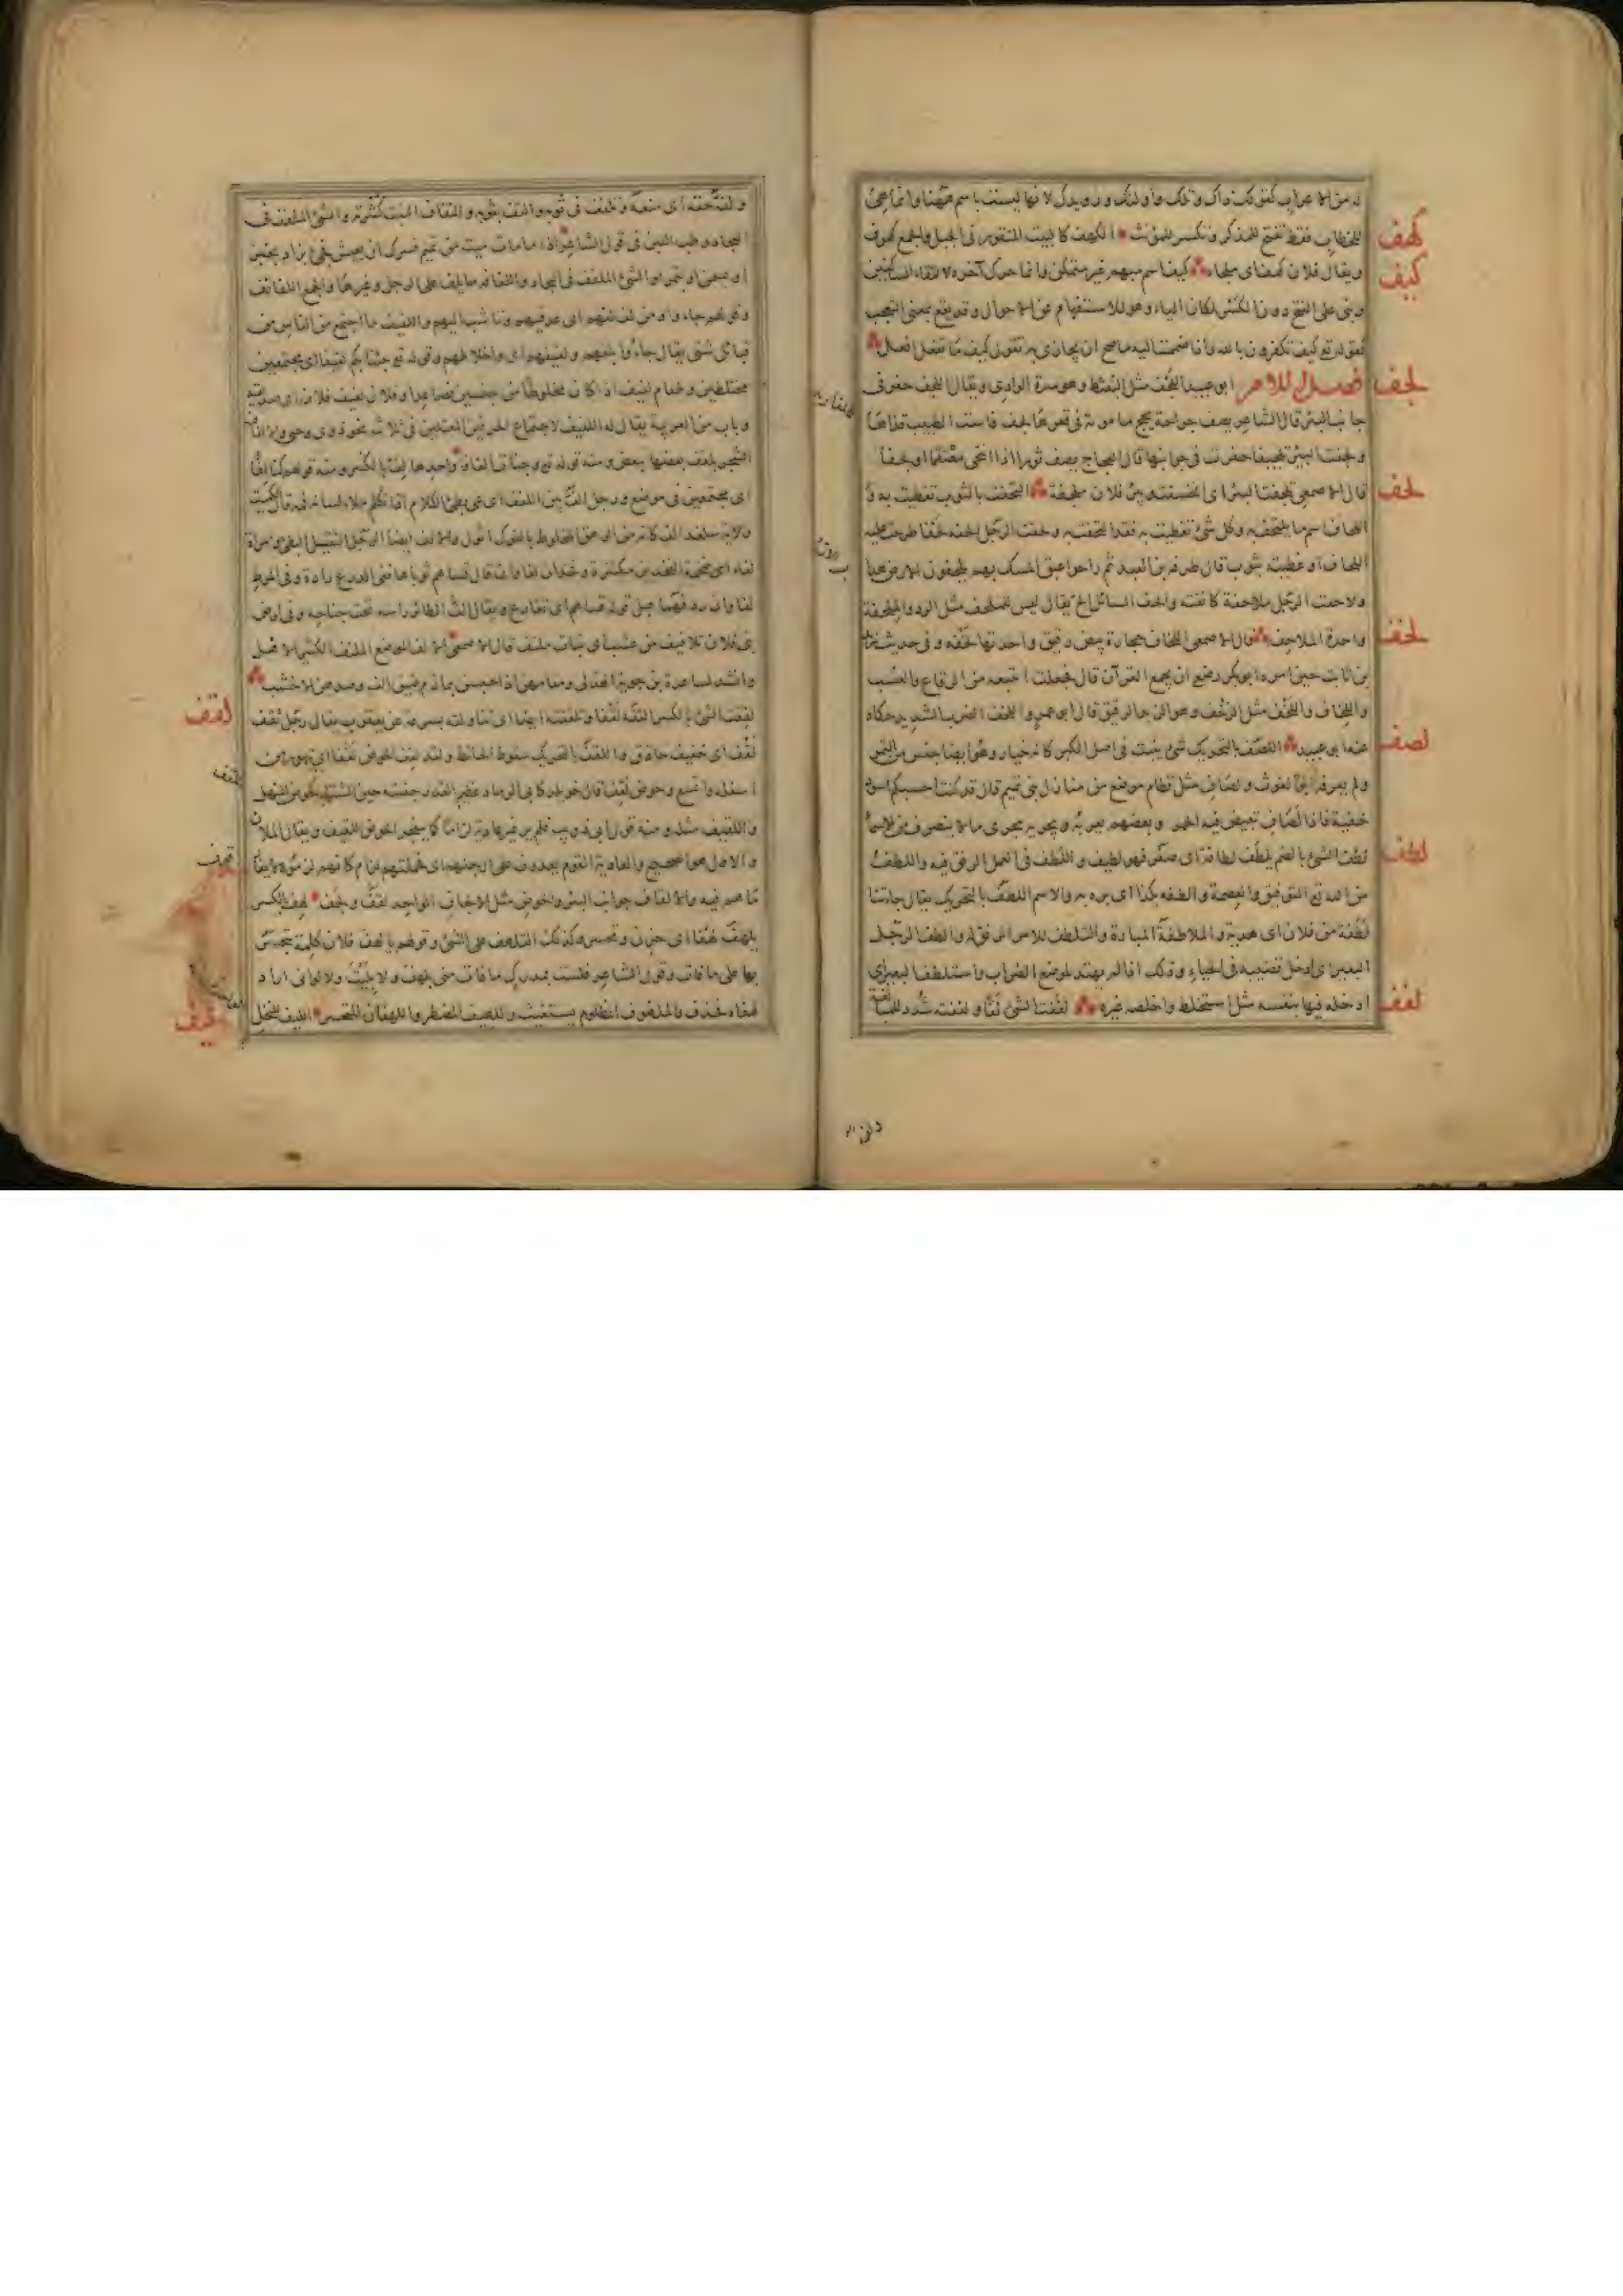 له من الاعراب كقولك ذاك وتلك واولئك ورويدك لانها ليست باسم ههنا وانما هي
للخطاب فقط تفتح للمذكر وتكسر للمؤنث الكهف كالبيت المنقور في الجبل والجمع كهوف
كهف
ويقال فلان كهف اي ملجاء كيف اسم مبهم غير متمكن وانما حرك آخره لالتقاء الساكنين
كيف
وبنى على الفتح دون الكسر لمكان الياء وهو للاستفهام عن الاحوال وقد يقع بمعنى التعجب
كقوله تع كيف تكفرون بالله واذا ضممت اليه ما صح ان يجازى به تقول كيف ما تفعل افعل
فصل اللام ابو عبيد اللجف مثل البعثط وهو سرة الوادى ويقال اللجف حفر في
لجف
جانب البئر قال الشاعر يصف جراحة يحج مامومة في قعرها لجف فاست الطبيب قذاها
ولجفت البئر تلجيفا حفرت في جوانبها قال العجاج يصف ثورا اذا انتحى معتقما او لجفا
قال الاصمعي تلجفت البئر اي انخسفت وبئر فلان متلجفة التحفت بالثوب تغطيت به و
لحف
اللحاف اسم ما يلتحف به وكل شئ تغطيت به فقد التحفت به ولحفت الرجل الحفه لحفا طرحت عليه
اللحاف او غطيته بثوب قال طرفة بن العبد ثم راحوا عبق المسك بهم يلحفون الارض هداب
ولاحفت الرجل ملاحفة كانفته والحف السائل الح يقال ليس للملحف مثل الرد والملحفة
واحدة الملاحف قال الاصمعي اللخاف حجارة بيض رقيق واحدتها لخفة وفي حديث زيد
لخف
بن ثابت حين امره ابو بكر رضع ان يجمع القرآن قال فجعلت اتتبعه من الرقاع والعسب
واللخاف واللخف مثل الرخف وهو الزبد الرقيق قال ابو عمرو اللخف الضرب الشديد حكاه
عنه ابو عبيد اللصف بالتحريك شئ ينبت في اصل الكبر كانه خيار وهو ايضا جنس من التمر
لصف
ولم يعرفه ابو الغوث ولصاف مثل قطام موضع من منازل بني تميم قال قد كنت احسبكم اسود
خفية فاذا لصاف تبيض فيه الحمر وبعضهم يعربه ويجريه مجرى ما لا ينصرف من الاسماء
لطف الشئ بالضم يلطف لطافة اى صغر فهو لطيف واللطف في العمل الرفق فيه واللطف
لطف
من الله تع التوفيق والعصمة والطفه بكذا اى بره به والاسم اللطف بالتحريك يقال جاءتنا
لطفة من فلان اى هدية والملاطفة المبارة والتلطف للامر الترفق له والطف الرجل
البعير اى ادخل قضيبه في الحياء وذلك اذا لم يهتد لموضع الضراب واستلطف البعير اى
ادخله فيها بنفسه مثل استخلط واخلطه غيره لففت الشئ لفا ولففته شدد للمبالغة
لفف
ولفه حقه اى منعه وتلفف في ثوبه والتف بثوبه والتفاف النبت كثرته والشئ الملفف في
البجاد وطب اللبن في قول الشاعر اذا ما مات ميت من تميم فسرك ان يعيش فجئ بزاد بخبز
او بسمن او بتمر او الشئ الملفف في البجاد واللفافة ما يلف على الرجل وغيرها والجمع اللفائف
وقولهم جاءوا ومن لف لفهم اى من عد فيهم وتاشب اليهم واللفيف ما اجتمع من الناس من
قبائل شتى يقال جاءوا بلفهم ولفيفهم اى واخلاطهم وقوله تع جئنا بكم لفيفا اى مجتمعين
مختلطين وطعام لفيف اذا كان مخلوطا من جنسين فصاعدا وفلان لفيف فلان اى صديقه
وباب من العربية يقال له اللفيف لاجتماع الحرفين المعتلين في ثلاثيه نحو ذوى وحيى والالفاف
الشجر يلتف بعضها ببعض ومنه قوله تع وجنات الفافا واحدها لف بالكسر ومنه قولهم كنا لفا
اى مجتمعين في موضع ورجل الف بين اللفف اى عى بطئ الكلام اذا تكلم ملأ لسانه فمه قال الكميت
ولاية سلغد الف كانه من الرهق المخلوط بالنوك اثول والالف ايضا الرجل الثقيل البطئ وامرأة
لفاء اى ضخمة الفخذين مكتنزة وفخذان لفاوان قال تساهم ثوباها ففى الدرع رادة وفي المرط
لفاوان ردفهما عبل قوله تساهم اى تقارع ويقال الف الطائر راسه تحت جناحه وفي ارض
بنى فلان تلافيف من عشب اى نبات ملتف قال الاصمعي الالف الموضع الملتف الكثير الاهل
وانشد لساعدة بن جوية الهذلى ومقامهن اذا حبسن بمازم ضيق الف وصدهن الاخشب
لقفت الشئ بالكسر القفه لقفا وتلقفته ايضا اى تناولته بسرعة عن يعقوب يقال رجل ثقف
لقف
لقف اى خفيف حاذق واللقف بالتحريك سقوط الحائط ولقد لقف الحوض لقفا اى تهور من
اسفله واتسع وحوض لقف قال خويلد كابى الرماد عظيم القدر جفنته حين الشتاء كحوض المنهل
واللقيف مثله ومنه قول ابى ذويب فلم ير غير عادية لزاما كما يتفجر الحوض اللقيف ويقال الملآن
والاول هو الصحيح والعادية القوم يعدون على ارجلهم اى فحملتهم لزام كانهم لزموه لا يفارقون
ما هم فيه والالقاف جوانب البئر والحوض مثل الالجاف الواحد لقف ولجف لهف بالكسر
يلهف لهفا اى حزن وتحسر وكذلك التلهف على الشئ وقولهم يا لهف فلان كلمة يتحسر
بها على ما فات وقول الشاعر فلست بمدرك ما فات منى بلهف ولا بليت ولا لوانى اراد
لهفاه فحذف والملهوف المظلوم يستغيث واللهيف المضطر واللهفان المتحسر الليف للنخل